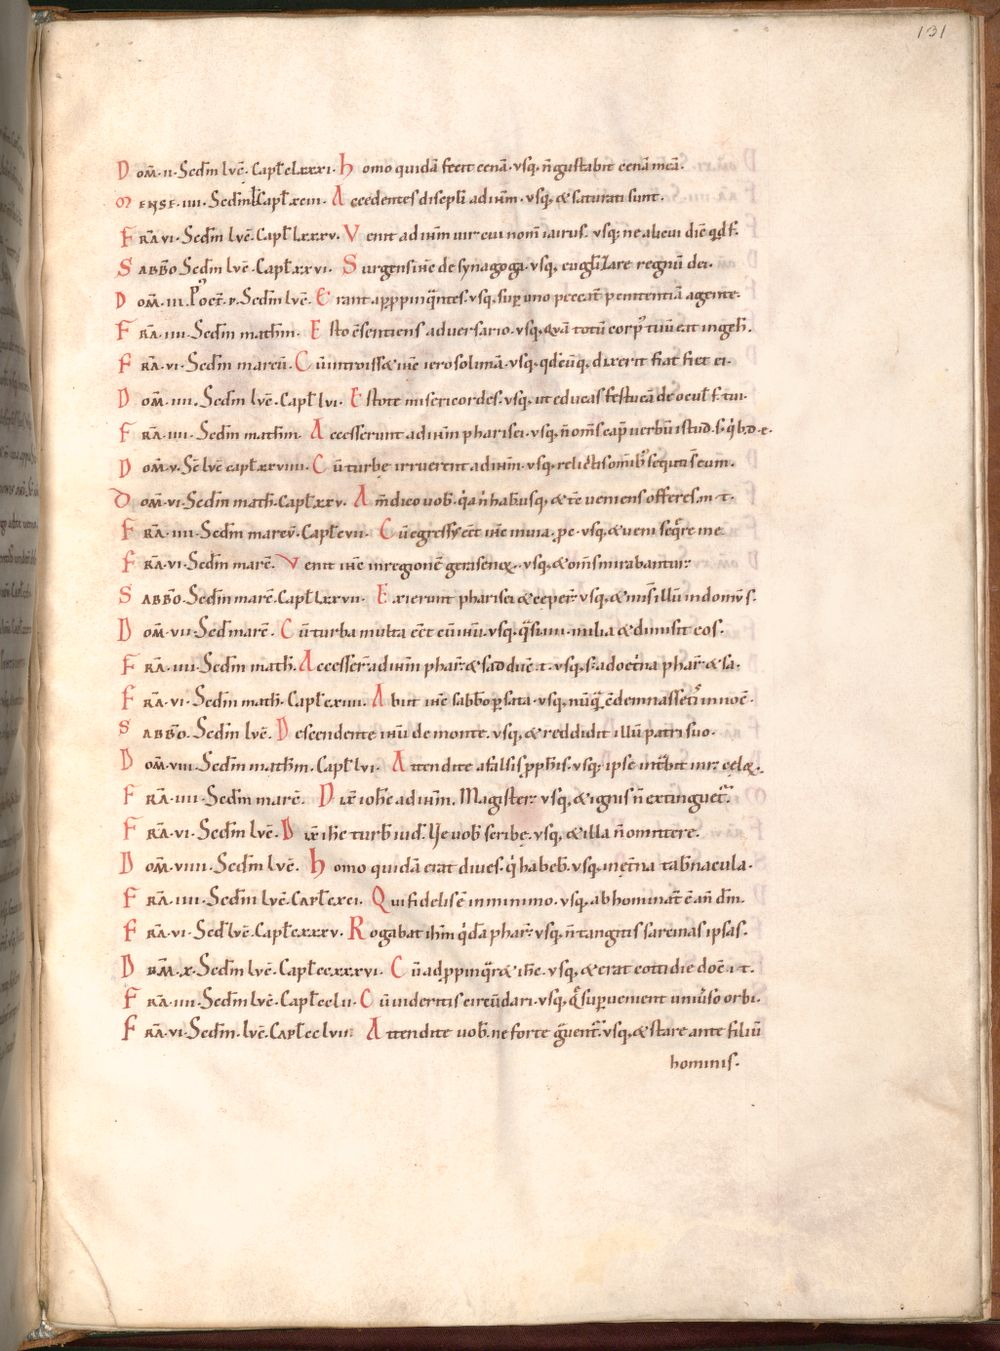 131
Dom̄. ii. Sedm̄ lvc̄. Capł clxxxi. Homo quidā fecit cenā. vsq; n̄ gustabit cenā meā.
Mense. iiii. Sedm̄ Capł xciii. Accedentes discipli ad ihm̄. vsq; & saturati sunt.
Fr̄a vi. Sedm̄ lvc̄. Capł lxxxv. Venit ad ihm̄ uir cui nom̄ iairus. vsq; ne alicui diē qd f.
Sabb̄o Sedm̄ lvc̄. Capł xxvi. Surgens ih̄c de synagoga. vsq; euglizare regnū dei.
Dom̄. iii. Post oct. p. Sedm̄ lvc̄. Erant appropinq̄ntes. vsq; sup uno peccat̄ penitentiā agente.
Fr̄a. iiii. Sedm̄ math̄m. Esto c̄sentiens adversario. vsq; quā totū corp' tuū eat in geh̄.
Fr̄a. vi. Sedm̄ marcū. Cū introiss& ih̄c ierosolimā. vsq; qdcūq; dixerit fiat fiet ei.
Dom̄. iiii. Sedm̄ lvc̄. Capł lvi. Estote misericordes. vsq; ut educas festucā de ocul f. tui.
Fr̄a. iiii. Sedm̄ math̄m. Accesserunt ad ihm̄ pharisei. vsq; n̄ om̄s capī uerbū istud. s. q̇b. d. e.
Dom̄. v. Sc̄ lvc̄ capł xxviiii. Cū turbe irruerent ad ihm̄. vsq; relictis omīb' secuti s̄ eum.
Dom̄. vi. Sedm̄ math̄. Capł xxv. Am̄ dico uob. q̇a n̄ hab. usq; & tc̄ ueniens offeres. m̄. t.
Fr̄a. iiii. Sedm̄ marcv̄. Capł cvii. Cū egressus eet ih̄c in uia. pc. vsq; & ueni seq̄re me.
Fr̄a. vi. Sedm̄ marc̄. Venit ih̄c in regionē gerasenoꝝ. vsq; & om̄s mirabantur.
Sabb̄o. Sedm̄ marc̄. Capł lxxvii. Exierunt pharisei & ceper̄. vsq; & mis illū in domū s.
Dom̄. vii. Sed marc̄. Cū turba multa eet cū ihū. vsq; q̄si iiii. milia & dimisit eos.
Fr̄a. iiii. Sedm̄ math̄. Accesser̄ ad ihm̄ phar̄. & sadduc̄. t. vsq; s; a doct̄na phar̄. & sa.
Fr̄a. vi. Sedm̄ math̄. Capł xiiii. Abiit ih̄c sabb̄o p sata. vsq; nūq̄ c̄demnassetis innoc̄.
Sabb̄o. Sedm̄ lvc̄. Descendente ihū de monte. vsq; & reddidit illū patri suo.
Dom̄. viii. Sedm̄ math̄m. Capł lvi. Attendite a falsis pph̄is. vsq; ipse int̄bit in r. celoꝝ.
Fr̄a. iiii. Sedm̄ marc̄. Dix̄ ioh̄c ad ihm̄. Magister. vsq; & ignis n̄ extinguet̄.
Fr̄a. vi. Sedm̄ lvc̄. Dix̄ ih̄c turb iud. Ve uob scribe. vsq; & illa n̄ omittere.
Dom̄. viiii. Sedm̄ lvc̄. Homo quidā erat dives. q̇ habeb. vsq; in et̄na tab̄nacula.
Fr̄a. iiii. Sedm̄ lvc̄. Capł cxci. Qui fidelis ē in minimo. vsq; abhominat̄ ē an̄ dm̄.
Fr̄a. vi. Sed lvc̄. Capł cxxxv. Rogabat ihm̄ q̇dā phar̄. vsq; n̄ tangitis sarcinas ipsas.
Dom̄. x. Sedm̄ lvc̄. Capł ccxxxvi. Cū adppinq̄r& ih̄c. vsq; & erat cottidie doc̄. i. t.
Fr̄a. iiii. Sedm̄ lvc̄. Capł cclu. Cū uideritis circūdari. vsq; q̄ supuenient univ̄so orbi.
Fr̄a. vi. Sedm̄. lvc̄. Capł cclvii. Attendite uob. ne forte g̃uent̄. vsq; & stare ante filiū
hominis.